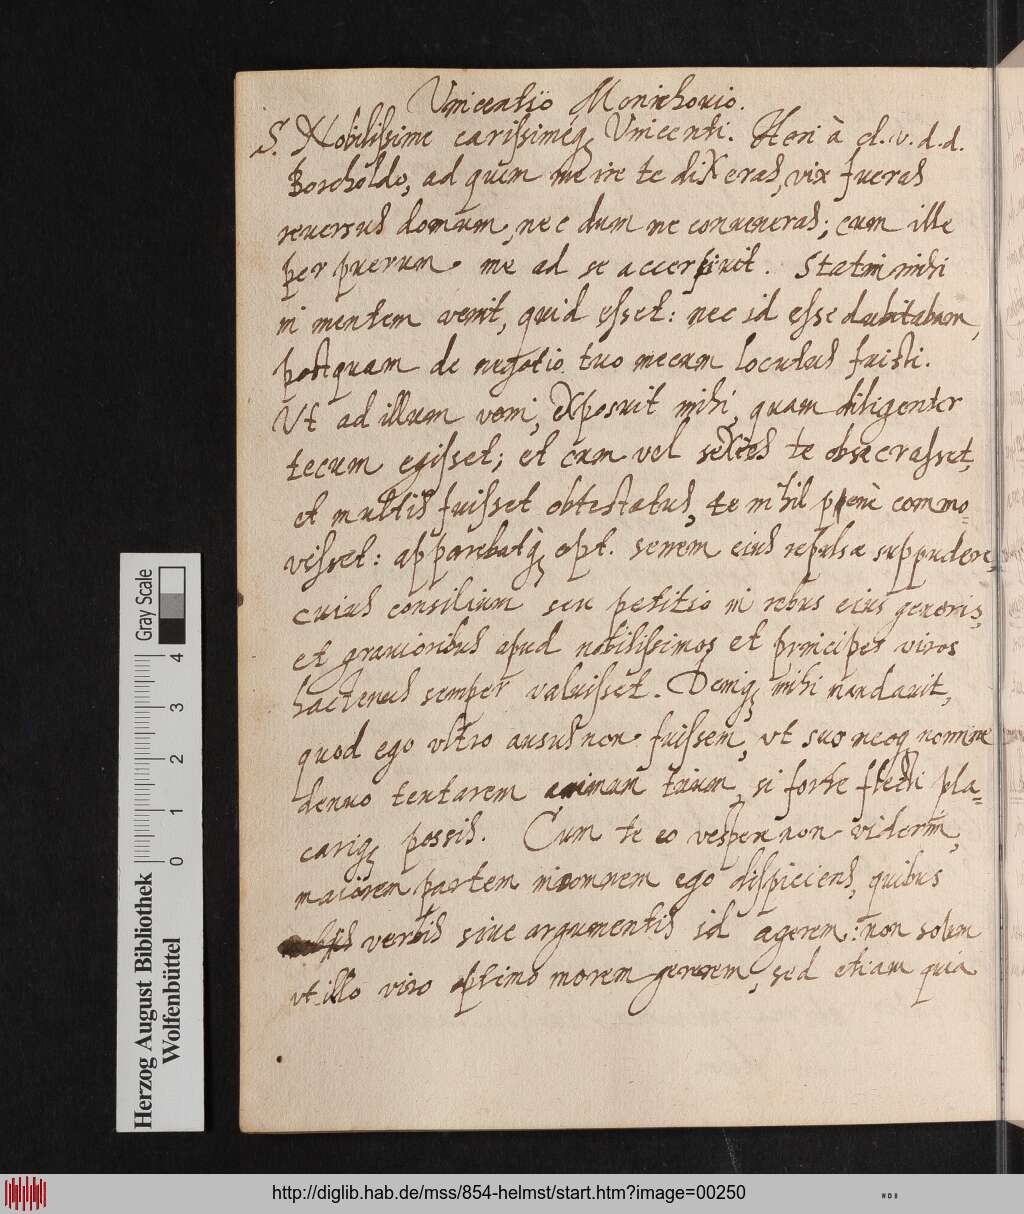 Vincentio Monichovio.
S. Nobilissime carissimeq; Vincenti. Heri à cl. v. d. d.
Borcholdo, ad quem me ire te dixeras, vix fueras
reversus domum, nec dum me conveneras; cum ille
per puerum me ad se accersivit. Statim mihi
in mentem venit, quid esset: nec id esse dubitabam,
postquam de negotio tuo mecum locutus fuisti.
Vt ad illum veni, exposuit mihi, quam diligenter
tecum egisset; et cum vel sexies te obsecrasset,
et multis fuisset obtestatus, te nihil penè commo=
visset: apparebatq; opt. senem eius repulsae suppudere,
cuius consilium seu petitio in rebus eius generis,
et gravioribus apud nobilissimos et principes viros
hactenus semper valuisset. Deniq; mihi mandavit,
quod ego vltro ausus non fuissem, vt suo meoq; nomine
denuo tentarem animum tuum, si forte flecti pla=
cariq; possis. Cum te eo vesperi non viderim,
maiorem partem insomnem ego dispiciens, quibus
verbis sive argumentis id agerem: non solum
vt illo viro optimo morem gererem, sed etiam quia
Herzog August Bibliothek
Wolfenbüttel
0 1 2 3 4
Gray Scale
http://diglib.hab.de/mss/854-helmst/start.htm?image=00250
WDB